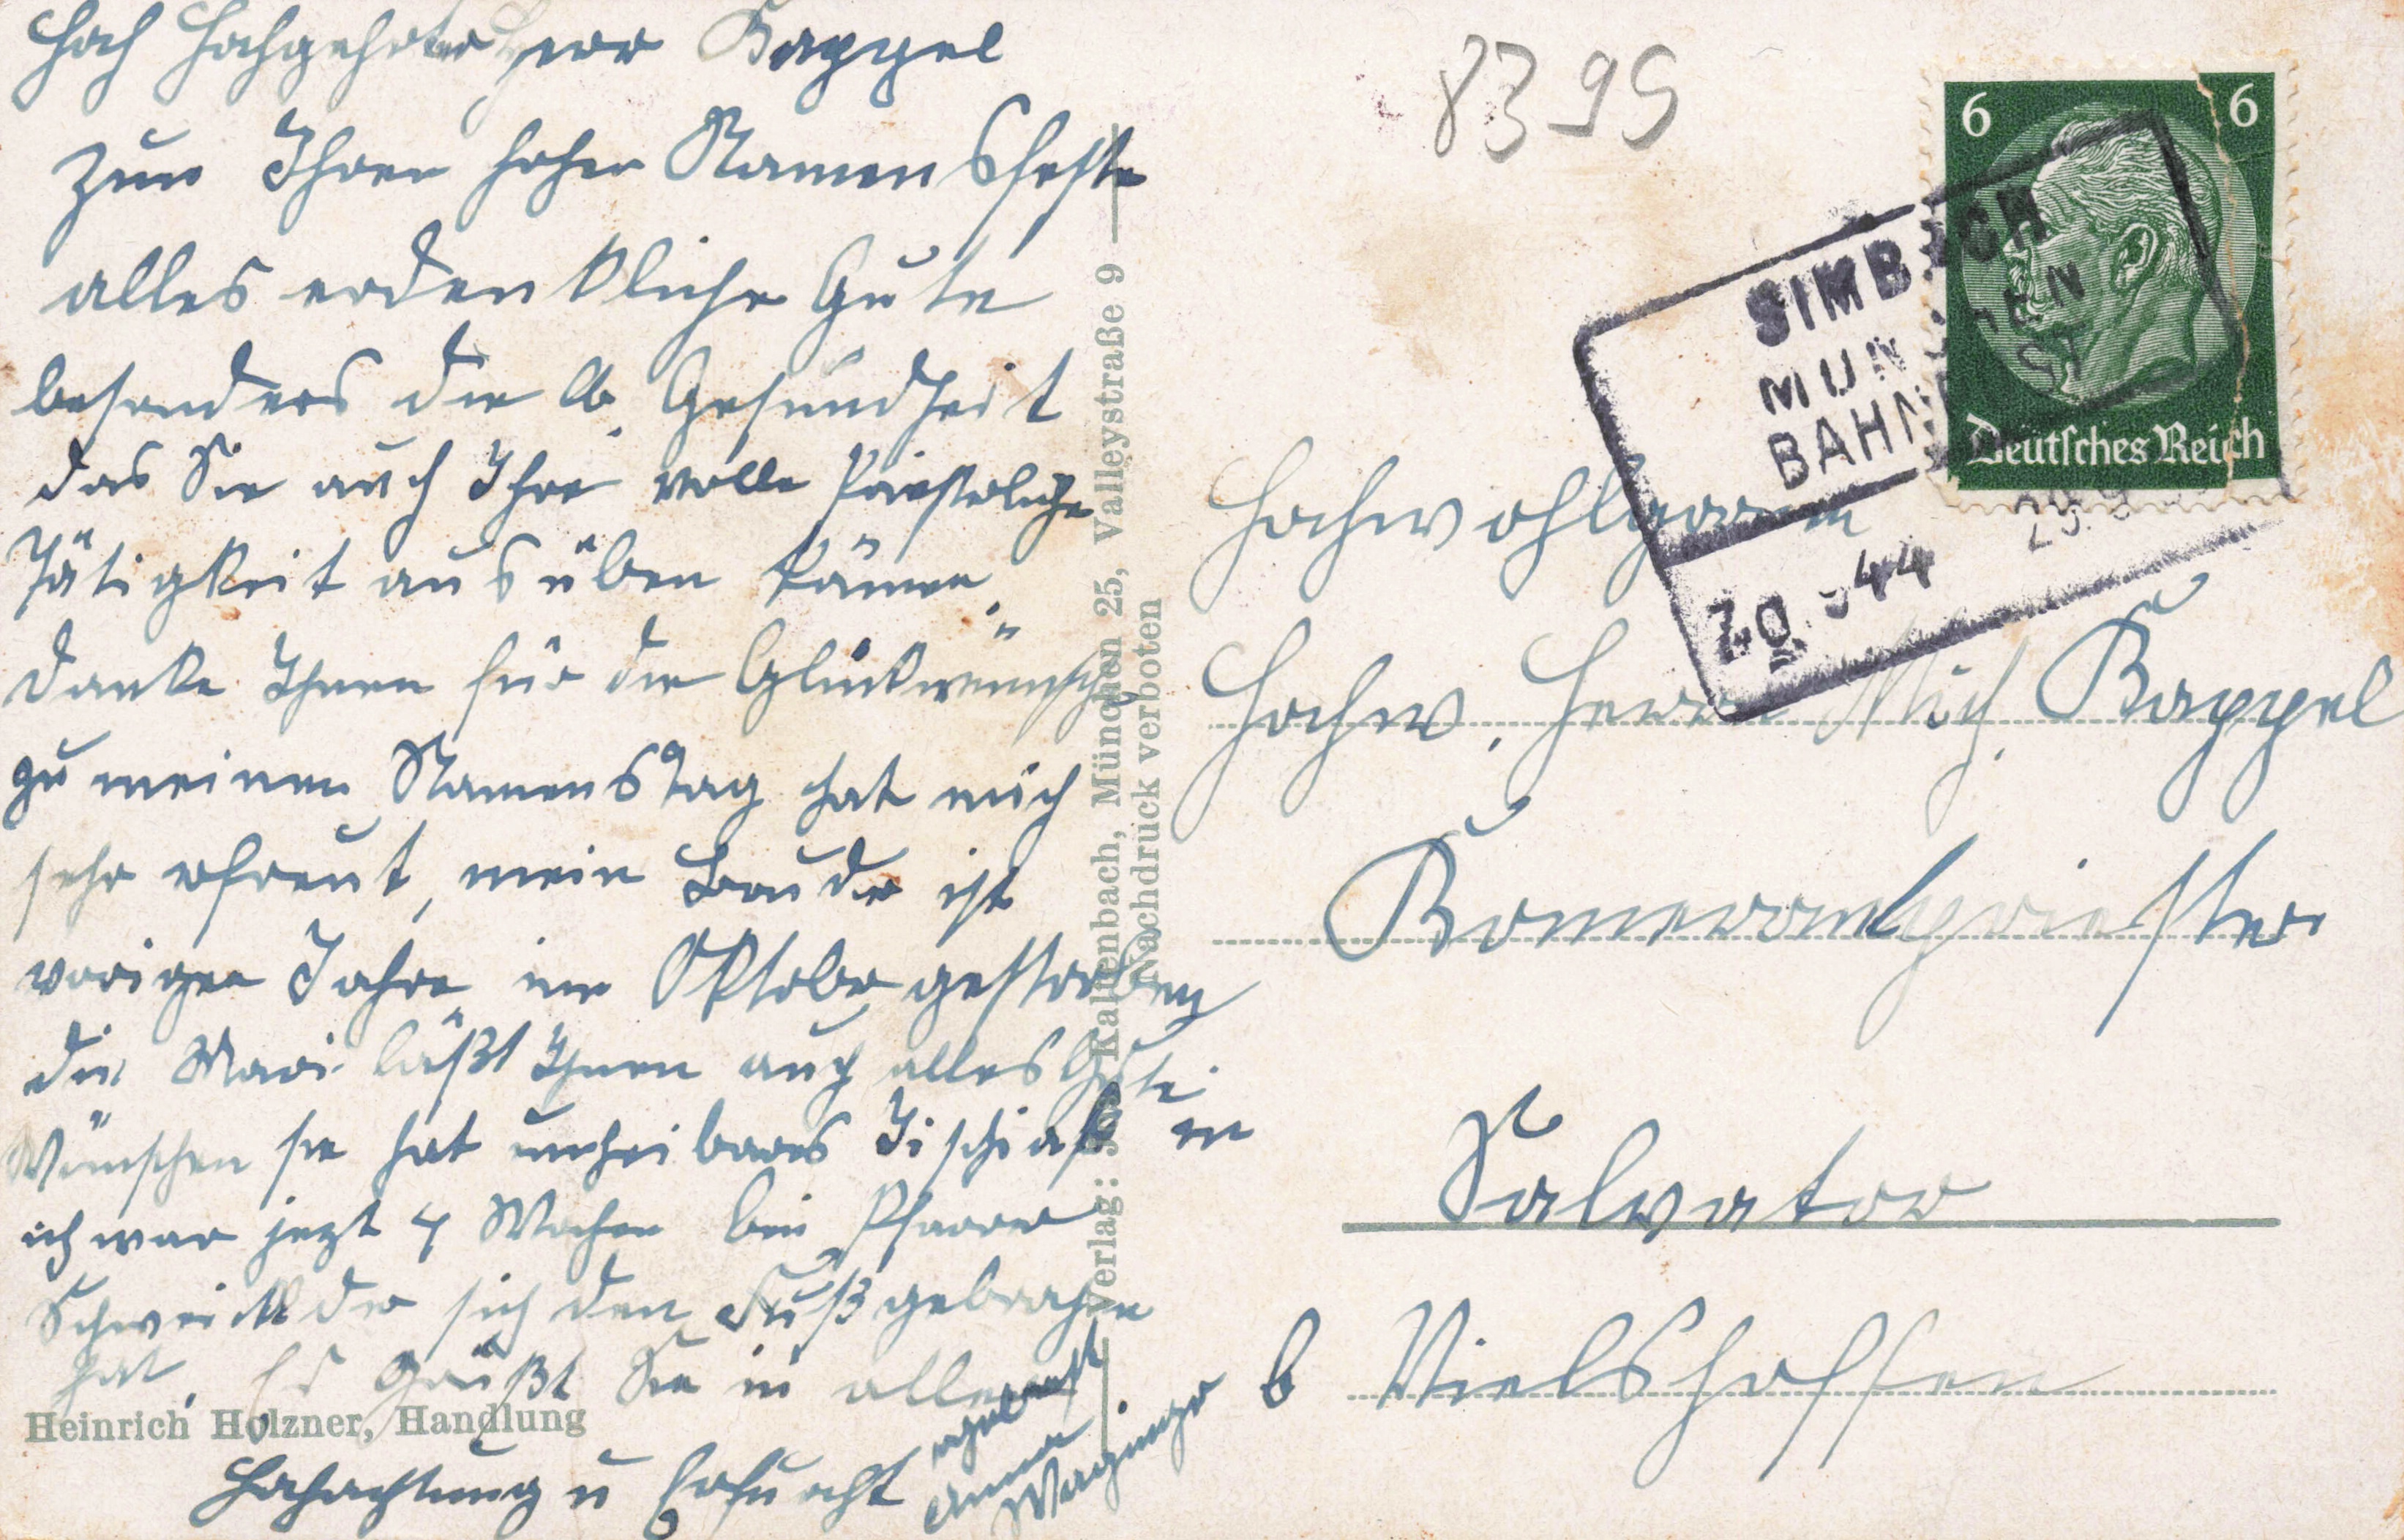 Hoch Hochgehrter Herr Kappel
zum Ihren hohen Namensfeste
alles erdenkliche Gute
besonders die lb. Gesundheit
das Sie auch Ihre volle Priesterliche
Tätigkeit ausüben können
Danke Ihnen für die Glückwünsche
zu meinen Namenstag hat mich
sehr erfreut, mein Bruder ist
vorigen Jahre im Oktober gestorben
die Mari läßt Ihnen auch alles Gute
Wünschen sie hat unheilbares Ischias
ich war jezt 4 Wochen bei Pfarrer
der sich den Fuß gebrochen
hat. Es Grüßt Sie in aller
Hochachtung u Erfurcht
ergebenst
Anna
Waginger
Heinrich Holzner, Handlung
Verlag: Jos. Kaltenbach, München 25, Valleystraße 9
Nachdruck verboten
8395
6 6
Deutsches Reich
SIMBACH
MÜNCHEN
BAHNPOST
Zg. 944
Hochwohlgeoren
Hochw. Herrn Mich. Kappel
Komerantpriester
Salvator
b Vielshoffen